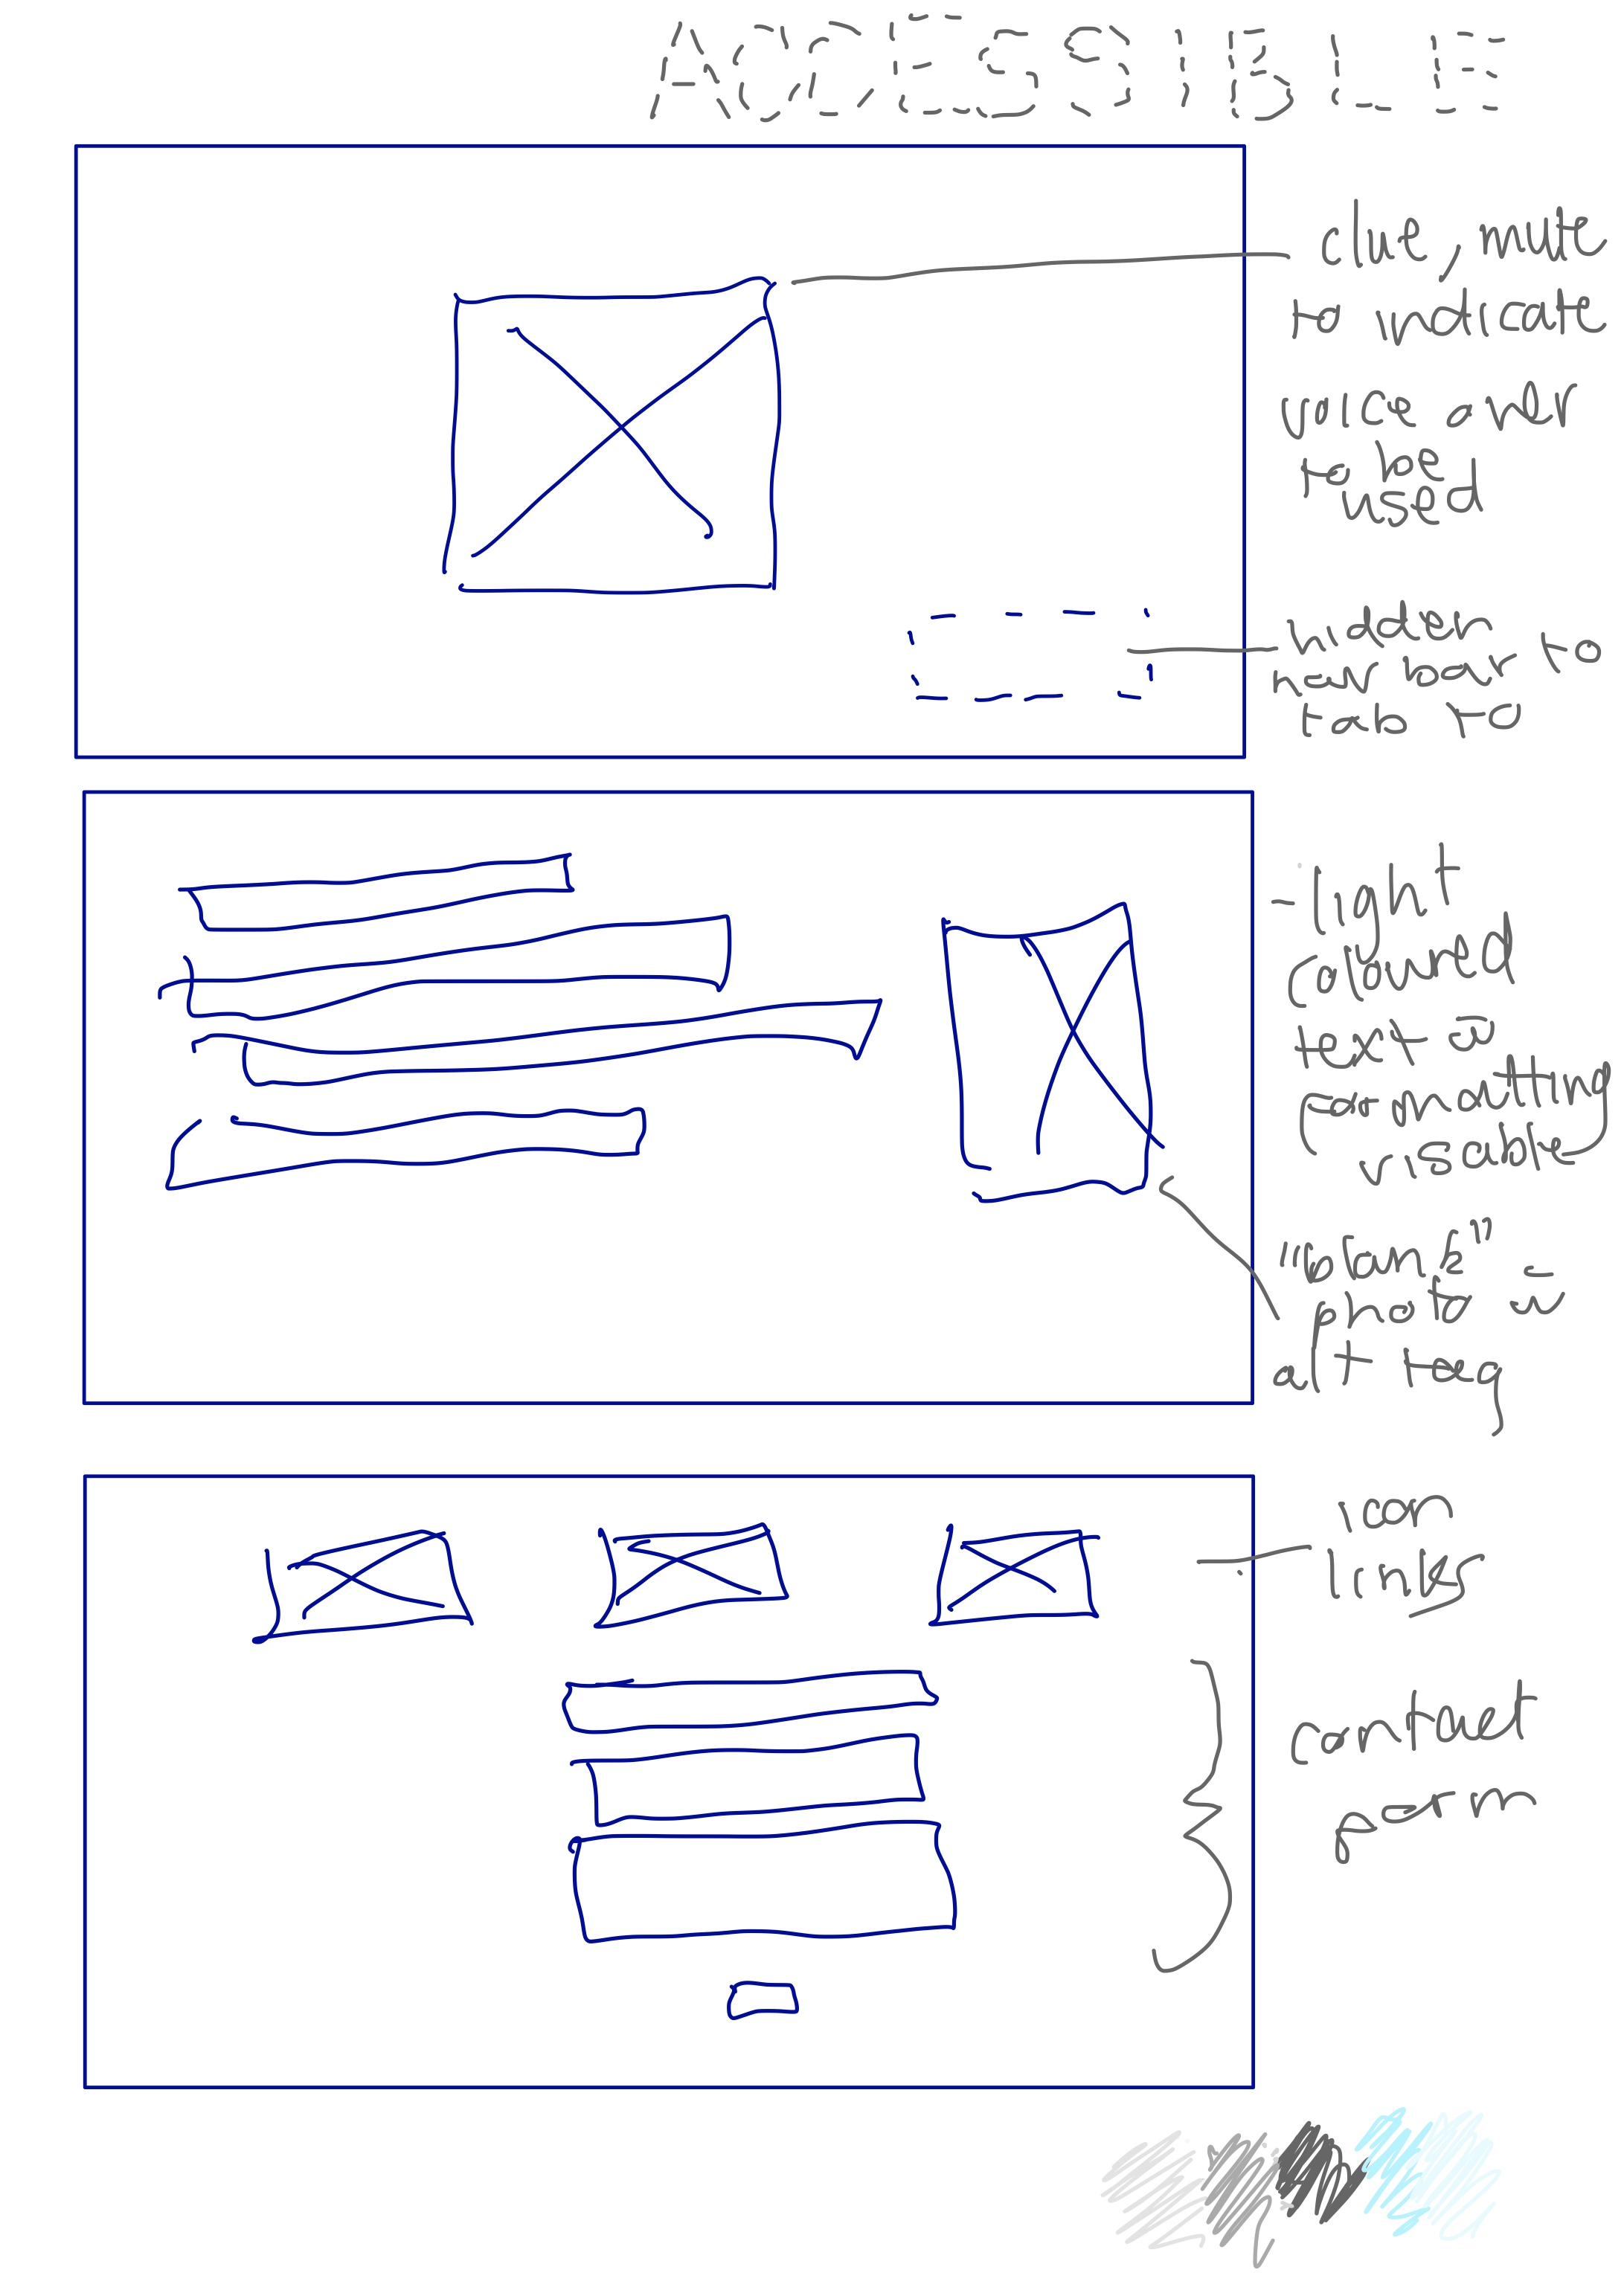 ACCESSIBLE
clue, mute
to indicate
voice over
to be
used
hidden
nav bar to
tab to
- light
coloured
text w
formatting
visable
"blank"
photo w
alt tag
icon
links
contact
form